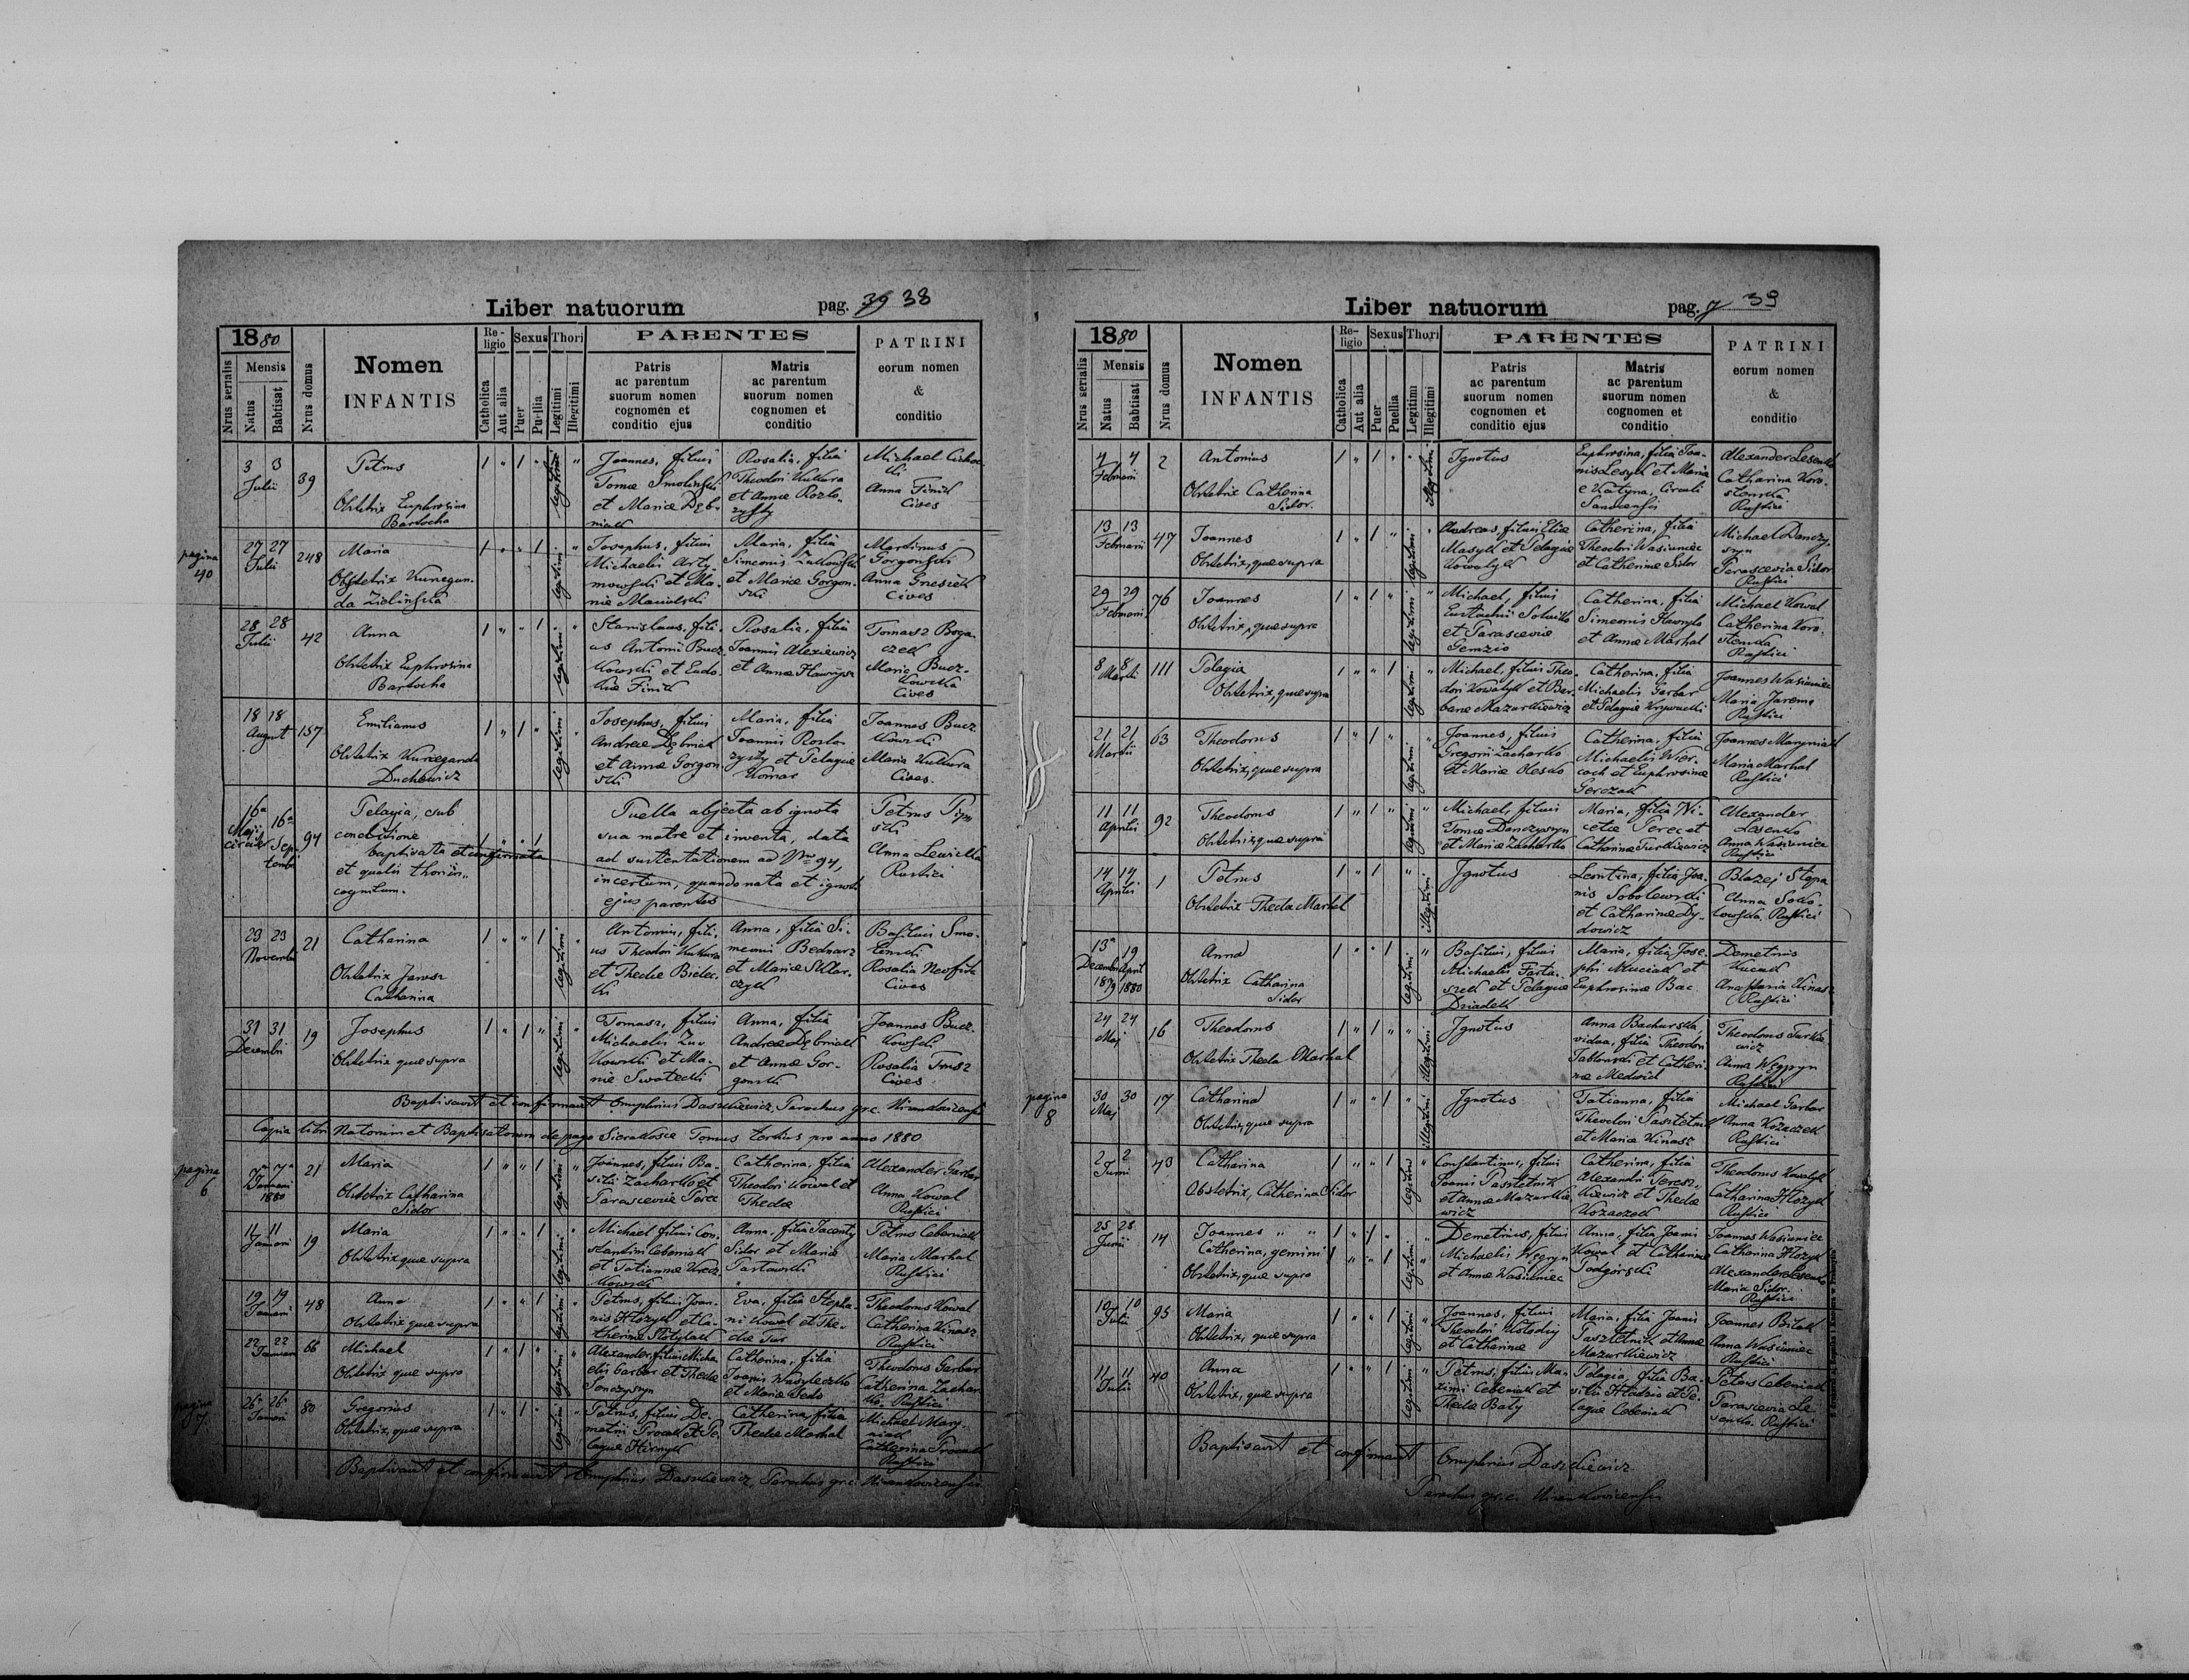 Liber natuorum pag. 39 38
1880
Nrus serialis
Mensis
Natus
Babtisat
Nrus domus
Nomen
INFANTIS
Re-
ligio
Catholica
Aut alia
Sexus
Puer
Puellia
Thori
Legitimi
Illegitimi
PARENTES
Patris
ac parentum
suorum nomen
cognomen et
conditio ejus
Matris
ac parentum
suorum nomen
cognomen et
conditio
PATRINI
eorum nomen
&
conditio
3 3
Julii
39
Petrus
Obstetrix Euphrosina
Bartocha
legitimi
Joannes, filius
Tomae Smoliński
et Mariae Dęb-
niak
Rosalia, filia
Theodori Kukura
et Annae Rozło-
zysty
Michael
Anna Finik
Cives
pagina
40
27 27
Julii
248
Maria
Obstetrix Kunegun-
da Zielińska
legitimi
Josephus, filius
Michaelis Arty-
mowski et Ma-
riae
Maria, filia
Simeonis Żukowski
et Mariae Gorgon-
ski
Martinus
Gorgoński
Anna Gnesick
Cives
28 28
Julii
42
Anna
Obstetrix Euphrosina
Bartocha
legitimi
Stanislaus, fili-
us Antonii Bucz-
kowski et Eudo-
kiae Finik
Rosalia, filia
Joannis Alexiewicz
et Annae
Tomasz Boga-
czek
Maria Bucz-
kowska
Cives
18 18
August
157
Emilianus
Obstetrix Kunegunda
Duchowicz
legitimi
Josephus, filius
Andreae Dębniak
et Annae Gorgon
ski
Maria, filia
Joannis Rozło-
zysty et Pelagiae
Komar
Joannes Bucz-
kowski
Maria Kukura
Cives.
16a
Maji
circiter
16a
Sep-
tembr
94
Pelagia, sub
conditione
baptisata et confirmata
et qualis thori in-
cognitum.
Puella abjecta ab ignota
sua matre et inventa, data
ad sustentationem ad Nm 94,
incertum, quando nata et ignoti
ejus parentes
Petrus
Anna Lewicka
Rustici
23 23
Novembr
21
Catharina
Obstetrix Jarosz
Catharina
legitimi
Antonius, fili-
us Theodori Kukura
et Theclae Bielec-
ki
Anna, filia Si-
meonis Bednarz
et Mariae Sklar-
czyk
Basilius Smo-
leński
Rosalia
Cives
31 31
Decembr
19
Josephus
Obstetrix quae supra
legitimi
Tomasz, filius
Michaelis Żu-
kowski et Ma-
riae
Anna, filia
Andreae Dębniak
et Annae Gor-
gonski
Joannes Bucz-
kowski
Rosalia
Cives
Baptisavit et confirmavit Omuphrius Daszkiewicz, Parochus gr.c.
Copia libri Natorum et Baptisatorum de pago Sierakosce Tomus tertius, pro anno 1880
pagina
6
7a 7a
Januarii
1880
21
Maria
Obstetrix Catharina
Sidor
legitimi
Joannes, filius Ba-
silii Zacharko et
Parasceviae Perec
Catharina, filia
Theodori Kowal et
Theclae
Alexander Garbar
Anna Kowal
Rustici
11 11
Januarii
19
Maria
Obstetrix quae supra
legitimi
Michael filius Con-
stantini Cebeniak
et Tatiannae Krecz-
kowski
Anna, filia Jacenty
Sidor et Mariae
Petrus Cebeniak
Maria Marhal
Rustici
19 19
Januarii
48
Anna
Obstetrix quae supra
legitimi
Petrus, filius Joan-
nis Hłożyk et Ca-
tharinae
Eva, filia Stepha-
ni Kowal et The-
clae Tur
Theodorus Kowal
Catharina Kinasz
Rustici
22 22
Januarii
66
Michael
Obstetrix quae supra
legitimi
Alexander, filius Micha-
elis Garbar et Theclae
Catharina, filia
Joannis Wasyleczko
et Mariae
Theodorus Garbar
Catharina Zachar-
ko. Rustici
26 26
Januarii
80
Gregorius
Obstetrix, quae supra
legitimi
Petrus, filius De-
metrii Procak et Pe-
lagiae Hirnyk
Catharina, filia
Theclae Marhal
Michael Mary-
niak
Catharina Procak
Rustici
Baptisavit et confirmavit Omuphrius Daszkiewicz, Parochus gr.c.
Liber natuorum pag. 7 39
1880
Nrus serialis
Mensis
Natus
Babtisat
Nrus domus
Nomen
INFANTIS
Re-
ligio
Catholica
Aut alia
Sexus
Puer
Puellia
Thori
Legitimi
Illegitimi
PARENTES
Patris
ac parentum
suorum nomen
cognomen et
conditio ejus
Matris
ac parentum
suorum nomen
cognomen et
conditio
PATRINI
eorum nomen
&
conditio
4 4
Februarii
2
Antonius
Obstetrix Catharina
Sidor.
illegitimi
Ignotus
Euphrosina, filia Joan-
nis Lesyk et Mariae
e Katyna, Circuli
Alexander Lesenko
Catharina Koro-
stenska
Rustici
13 13
Februarii
47
Joannes
Obstetrix, quae supra
legitimi
Andreas, filius Eliae
Masyk et Pelagiae
Kowalyk
Catharina, filia
Theodori Wasiuniec
et Catharinae Sidor
Michael Danczy-
szyn
Parascevia Sidor
Rustici
29 29
Februarii
76
Joannes
Obstetrix, quae supra
legitimi
Michael, filius
Eustachii
et Parasceviae
Catharina, filia
Simeonis Hawryło
et Annae Marhal
Michael Kowal
Catharina Koro-
stenska
Rustici
8 8
Martii
111
Pelagia
Obstetrix, quae supra
legitimi
Michael, filius Theo-
dori Kowalyk et Bar-
barae Mazurkiewicz
Catharina, filia
Michaelis Garbar
et Pelagiae
Joannes Wasiuniec
Maria Jarema
Rustici
21 21
Martii
63
Theodorus
Obstetrix, quae supra
legitimi
Joannes, filius
Gregorii Zacharko
et Mariae Olesko
Catharina, filia
Michaelis
et Euphrosinae
Joannes Maryniak
Maria Marhal
Rustici
11 11
Aprilis
92
Theodorus
Obstetrix, quae supra
legitimi
Michael, filius
Tomae Danczyszyn
et Mariae Zacharko
Maria, filia Ni-
cetae Perec et
Catharinae Turkiewicz
Alexander
Lesenko
Anna Wasiuniec
Rustici
14 14
Aprilis
1
Petrus
Obstetrix Thecla Marhal
illegitimi
Ignotus
Leontina, filia Joan-
nis Sobolewski
et Catharinae Dy-
dowicz
Błażej Stopa
Anna Soko-
łowska. Rustici
13a
Decembr
1879
19
April
1880
Anna
Obstetrix Catharina
Sidor
legitimi
Basilius, filius
Michaelis
et Pelagiae
Dziadek
Maria, filia Jose-
phi Muciak et
Euphrosinae Bac
Demetrius
Anastasia Kinasz
Rustici
24 24
Maj
16
Theodorus
Obstetrix Thecla Marhal
illegitimi
Ignotus
Anna Bachurska,
vidua, filia Theodori
Jabłonski et Cathari-
nae Medwid
Theodorus Turkie-
wicz
Anna Węgryn
Rustici
pagina
8
30 30
Maj
17
Catharina
Obstetrix, quae supra
illegitimi
Ignotus
Tatianna, filia
Theodori Pasztetnik
et Mariae Kinasz
Michael Garbar
Anna Kozaczek
Rustici
2 2
Junii
43
Catharina
Obstetrix, Catharina Sidor
legitimi
Constantinus, filius
Joannis Pasztetnik
et Annae Mazurkie-
wicz
Catharina, filia
Alexandri Teresz-
kiewicz et Theclae
Kozaczek
Theodorus Kowalyk
Catharina Hłożyk
Rustici
25 25
Junii
14
Joannes
Catharina, gemini
Obstetrix, quae supra
legitimi
Demetrius, filius
Michaelis Węgryn
et Annae Wasiuniec
Anna, filia Joannis
Kowal et Catharinae
Podgórski
Joannes Wasiuniec
Catharina Hłożyk
Alexander Lesenko
Maria Sidor.
Rustici
10 10
Julii
95
Maria
Obstetrix, quae supra
legitimi
Joannes, filius
Theodori Kołodiy
et Catharinae
Maria, filia Joannis
Pasztetnik et Annae
Mazurkiewicz
Joannes Bilak
Anna Wasiuniec
Rustici
11 11
Julii
40
Anna
Obstetrix, quae supra
legitimi
Petrus, filius Ma-
ximi Cebeniak et
Theclae Baty
Pelagia, filia Ba-
silii et Pe-
lagiae Cebeniak
Petrus Cebeniak
Parascevia Le-
senko. Rustici
Baptisavit et confirmavit Omuphrius Daszkiewicz
Parochus gr.c.